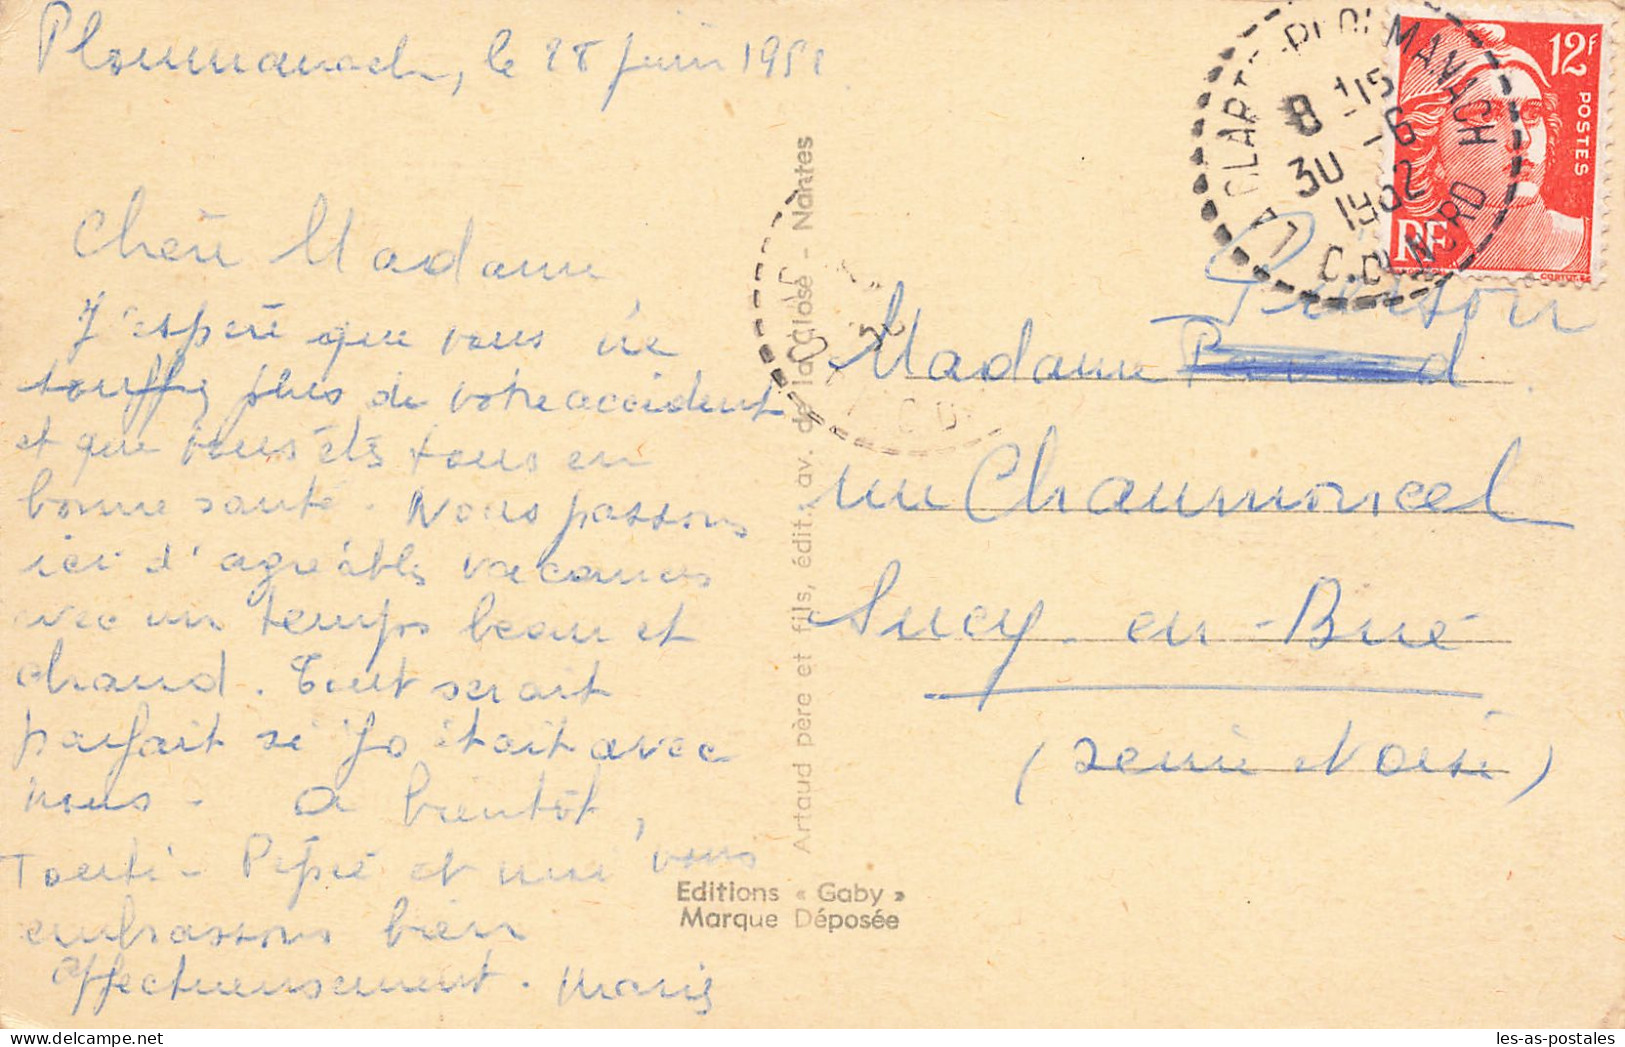 Ploumanach, le 28 juin 1952
Chère Madame
J'espère que vous ne
souffrez plus de votre accident
et que vous êtes tous en
bonne santé. Nous passons
ici d'agréables vacances
avec un temps beau et
chaud. Tout serait
parfait si Jo était avec
nous - A bientôt,
Tonti - Pépé et moi vous
embrassons bien
affectueusement. Marie
Artaud père et fils, édit., av. de la Close - Nantes
Editions « Gaby »
Marque Déposée
12F
POSTES
RF
LA CLARTE-PLOUMANACH
8 H15
30 -6
1952
C. DU NORD
Madame
rue Chaumoncel
Sucy-en-Brie
(Seine et Oise)
les-as-postales